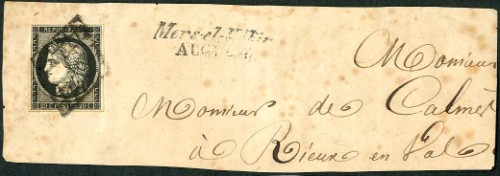 Mers-el-Kebir
Monsieur
Monsieur de Calmès
à Rieux en Val